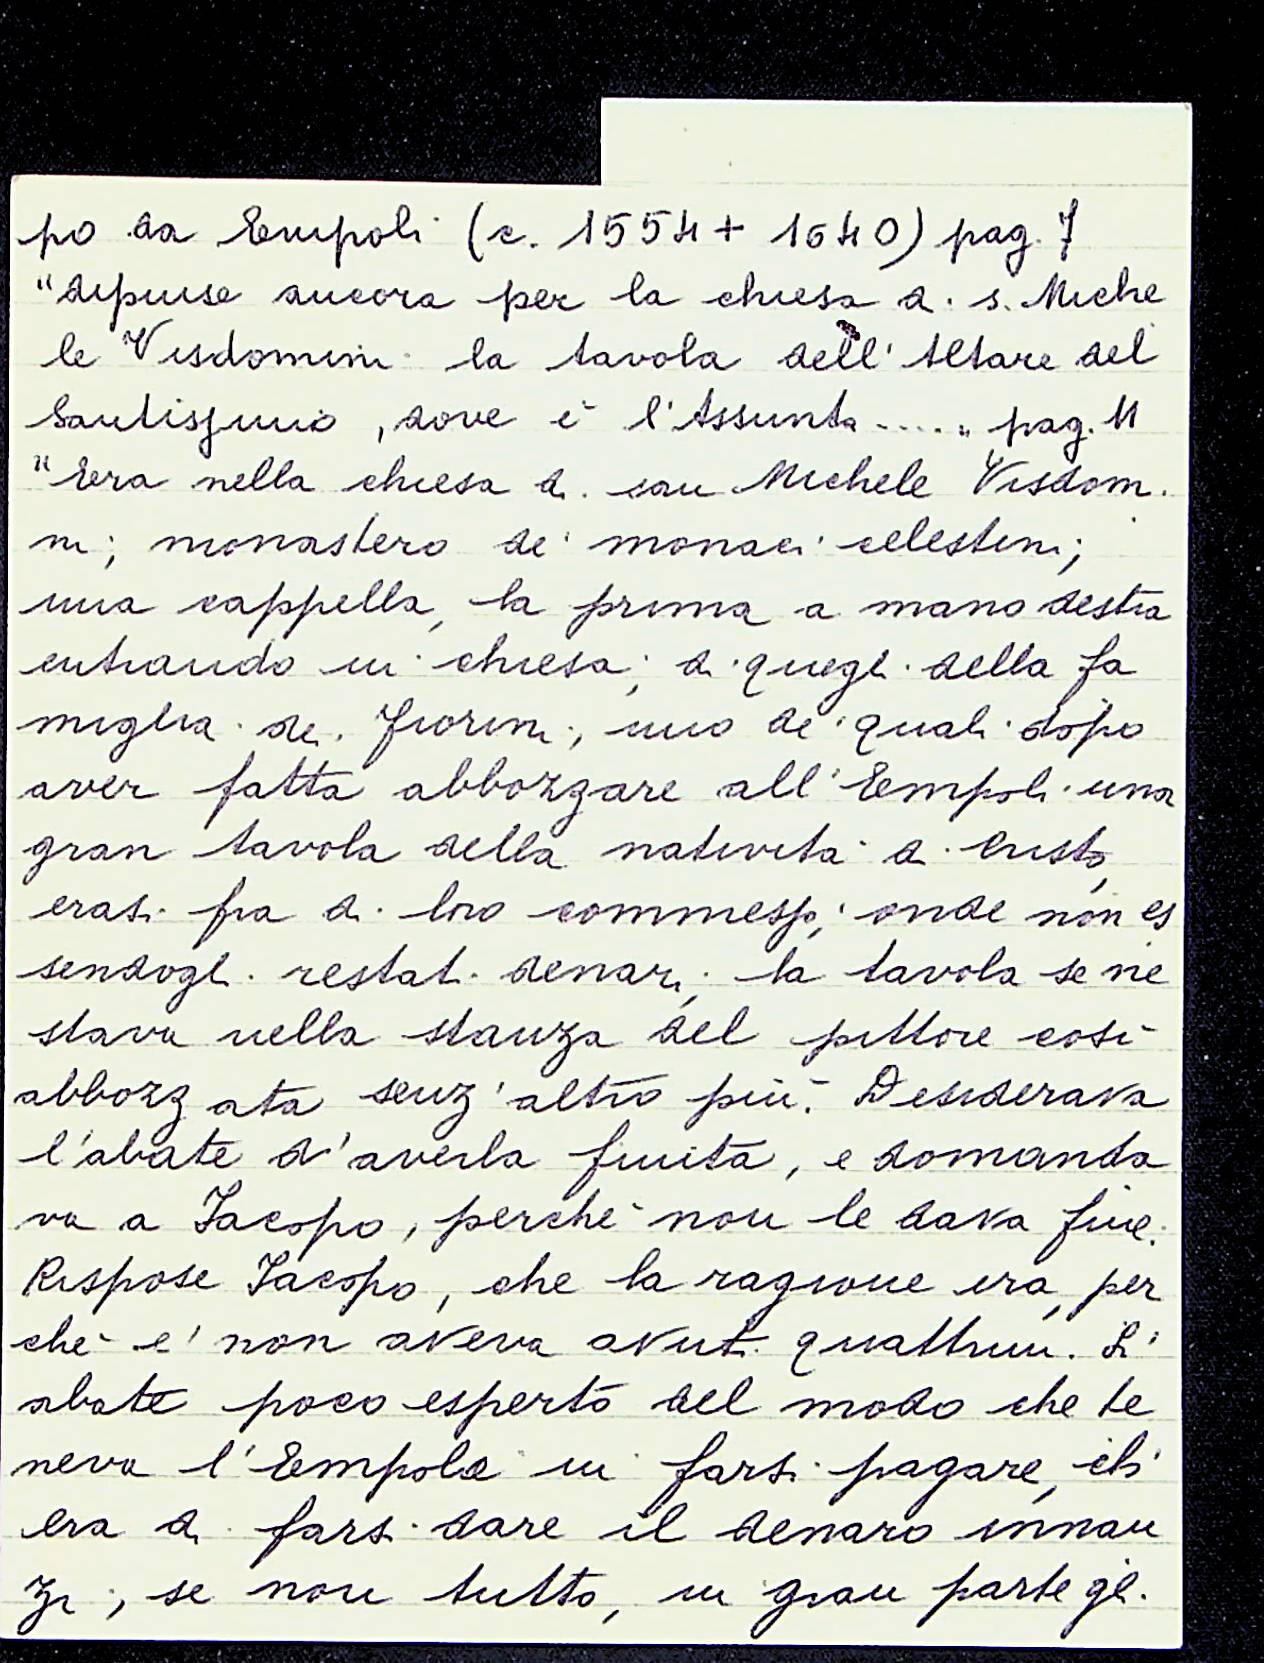 po da Empoli (c. 1554 + 1640) pag. 7
"dipinse ancora per la chiesa di s. Miche
le Visdomini la tavola dell'Altare del
Santissimo, dove è l'Assunta ....." pag. 11
"Era nella chiesa di san Michele Visdomi
ni; monastero de' monaci celestini;
una cappella, la prima a mano destra
entrando in chiesa; di quegli della fa
miglia dei Fiorini; uno de' quali dopo
aver fatta abbozzare all'Empoli una
gran tavola della natività di Cristo,
erasi fra di loro commesso; onde non es
sendogli restati denari; la tavola se ne
stava nella stanza del pittore così
abbozzata senz'altro più. Desiderava
l'abate d'averla finita, e domanda
va a Iacopo, perché non le dava fine.
Rispose Iacopo, che la ragione era, per
ché e' non aveva avuti quattrini. L'
abate poco esperto del modo che te
neva l'Empoli in farsi pagare, ch'
era di farsi dare il denaro innan
zi, se non tutto, in gran parte gli